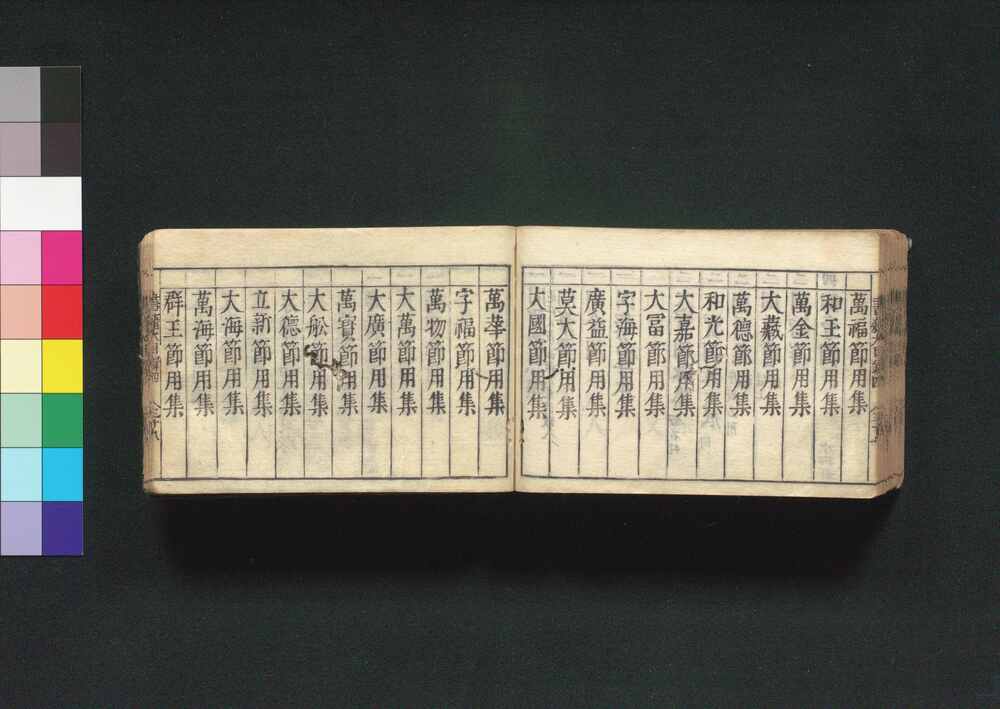 萬福節用集
和玉節用集
萬金節用集
大藏節用集
萬德節用集
和光節用集
大嘉節用集
大冨節用集
字海節用集
廣益節用集
莫大節用集
大國節用集
萬華節用集
字福節用集
萬物節用集
大萬節用集
大廣節用集
萬寳節用集
大舩節用集
大德節用集
立新節用集
大海節用集
萬海節用集
群玉節用集